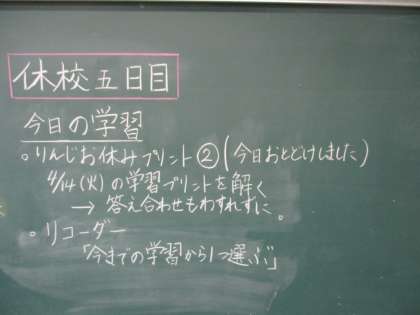 休校五日目
今日の学習
○りんじお休みプリント②(今日おとどけしました)
4/14(火)の学習プリントを解く
→ 答え合わせもわすれずに。
○リコーダー
「今までの学習から1つ選ぶ」